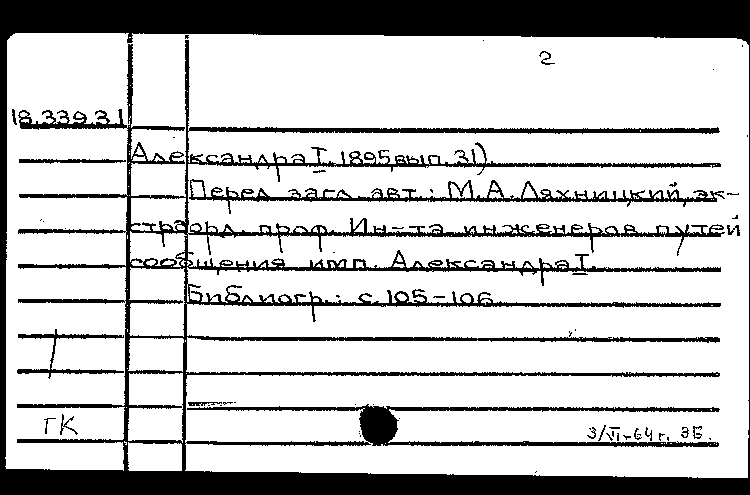 2
18.339.3.1
Александра I. 1895, вып. 31).
Перед загл. авт.: М.А. Ляхницкий, эк-
страорд. проф. Ин-та инженеров путей
сообщения имп. Александра I.
Библиогр.: с. 105-106
ГК
3/VI-64 г. ЗБ.